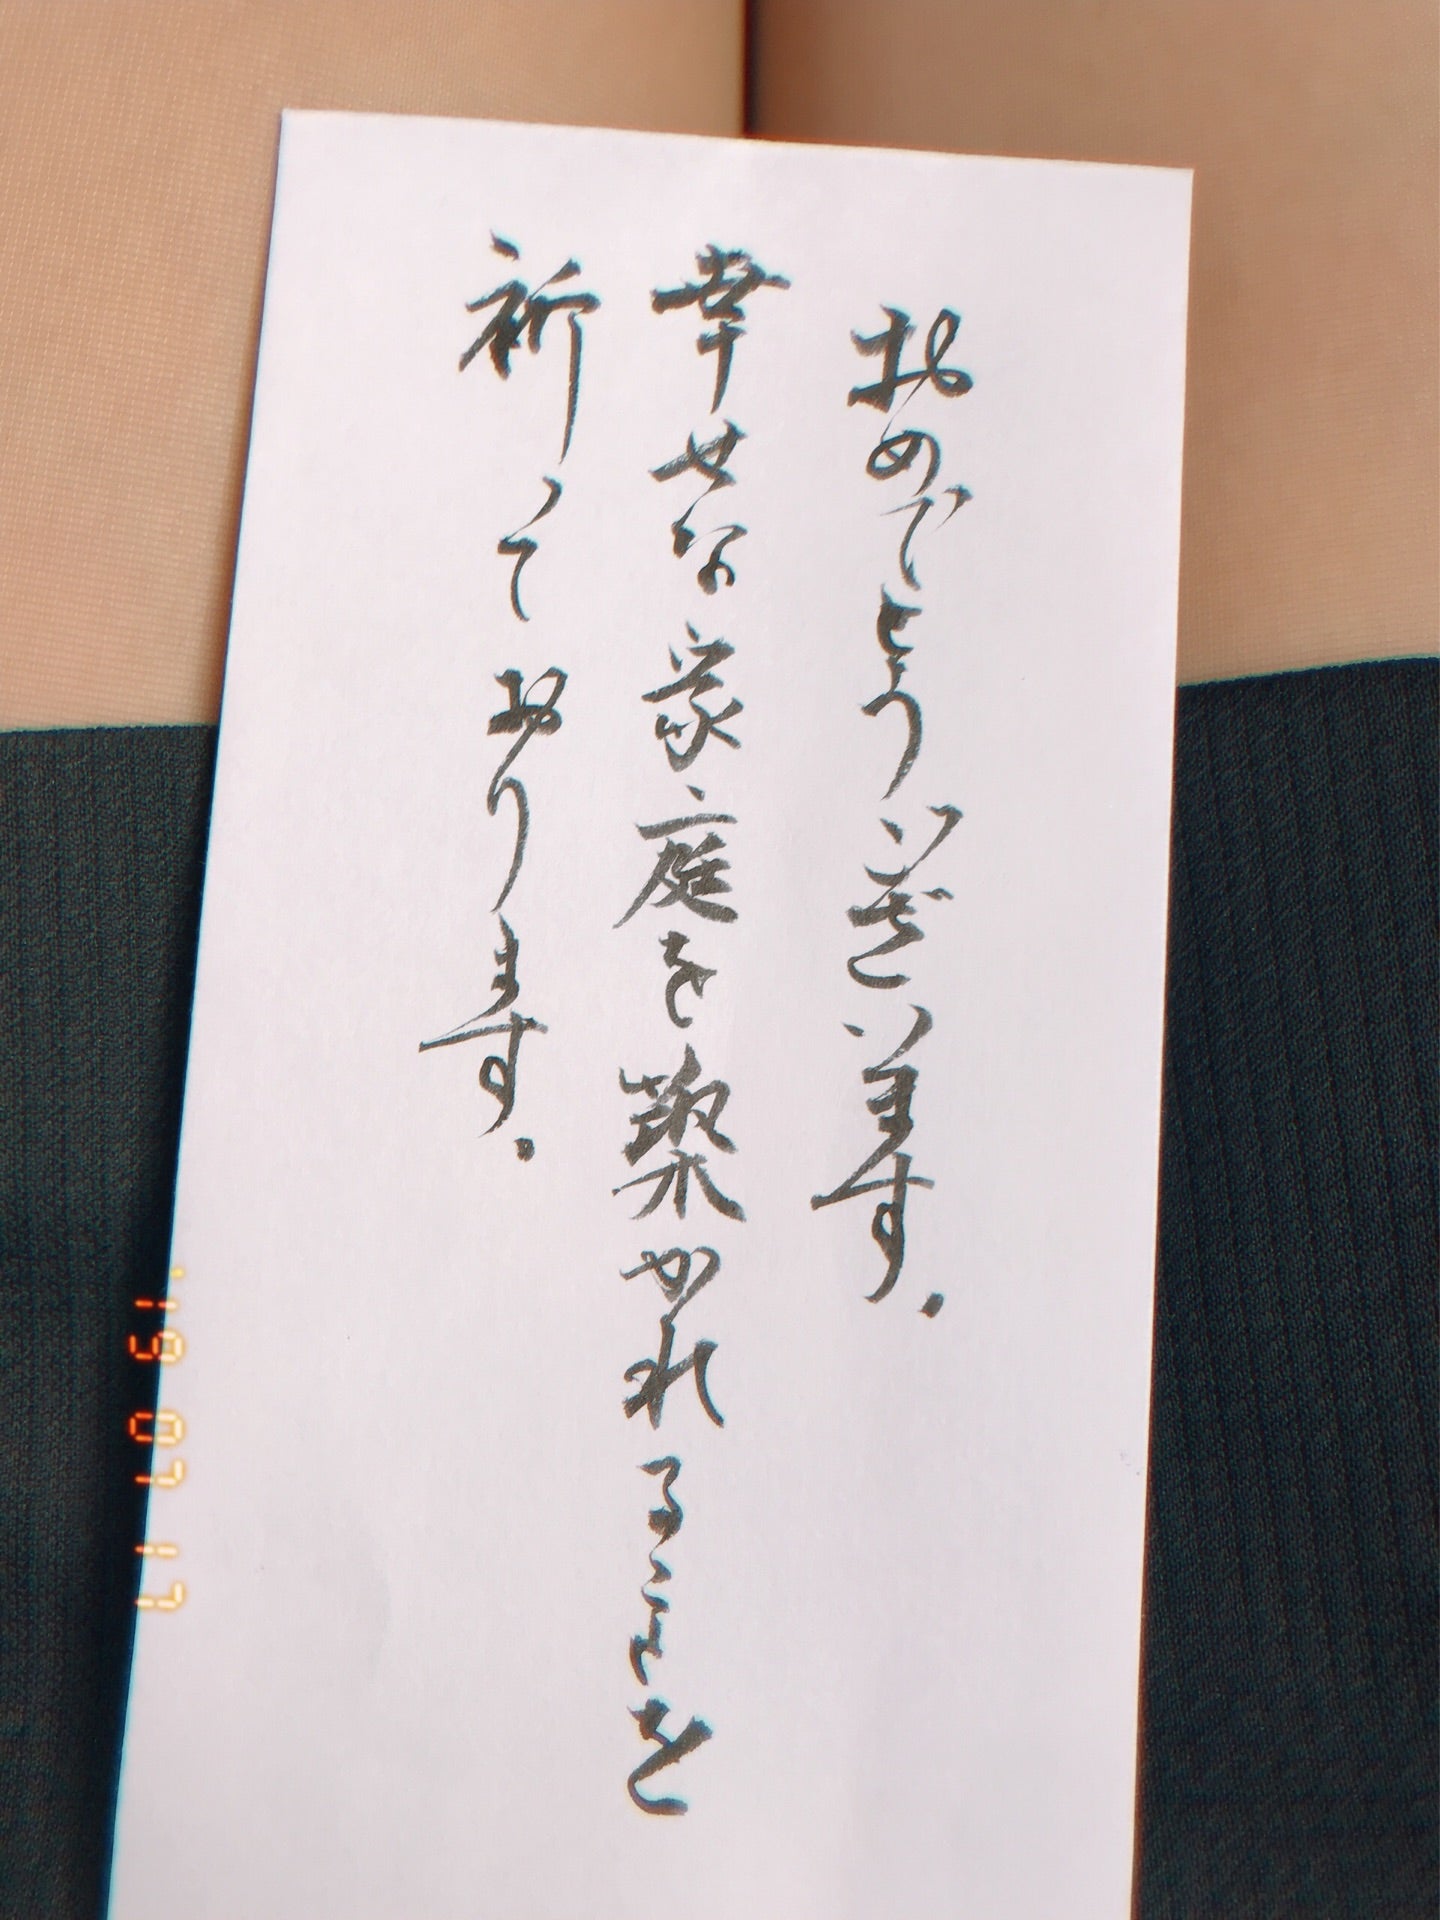 おめでとうございます.
幸せな家庭を築かれることを
祈っております.
'19 07 17